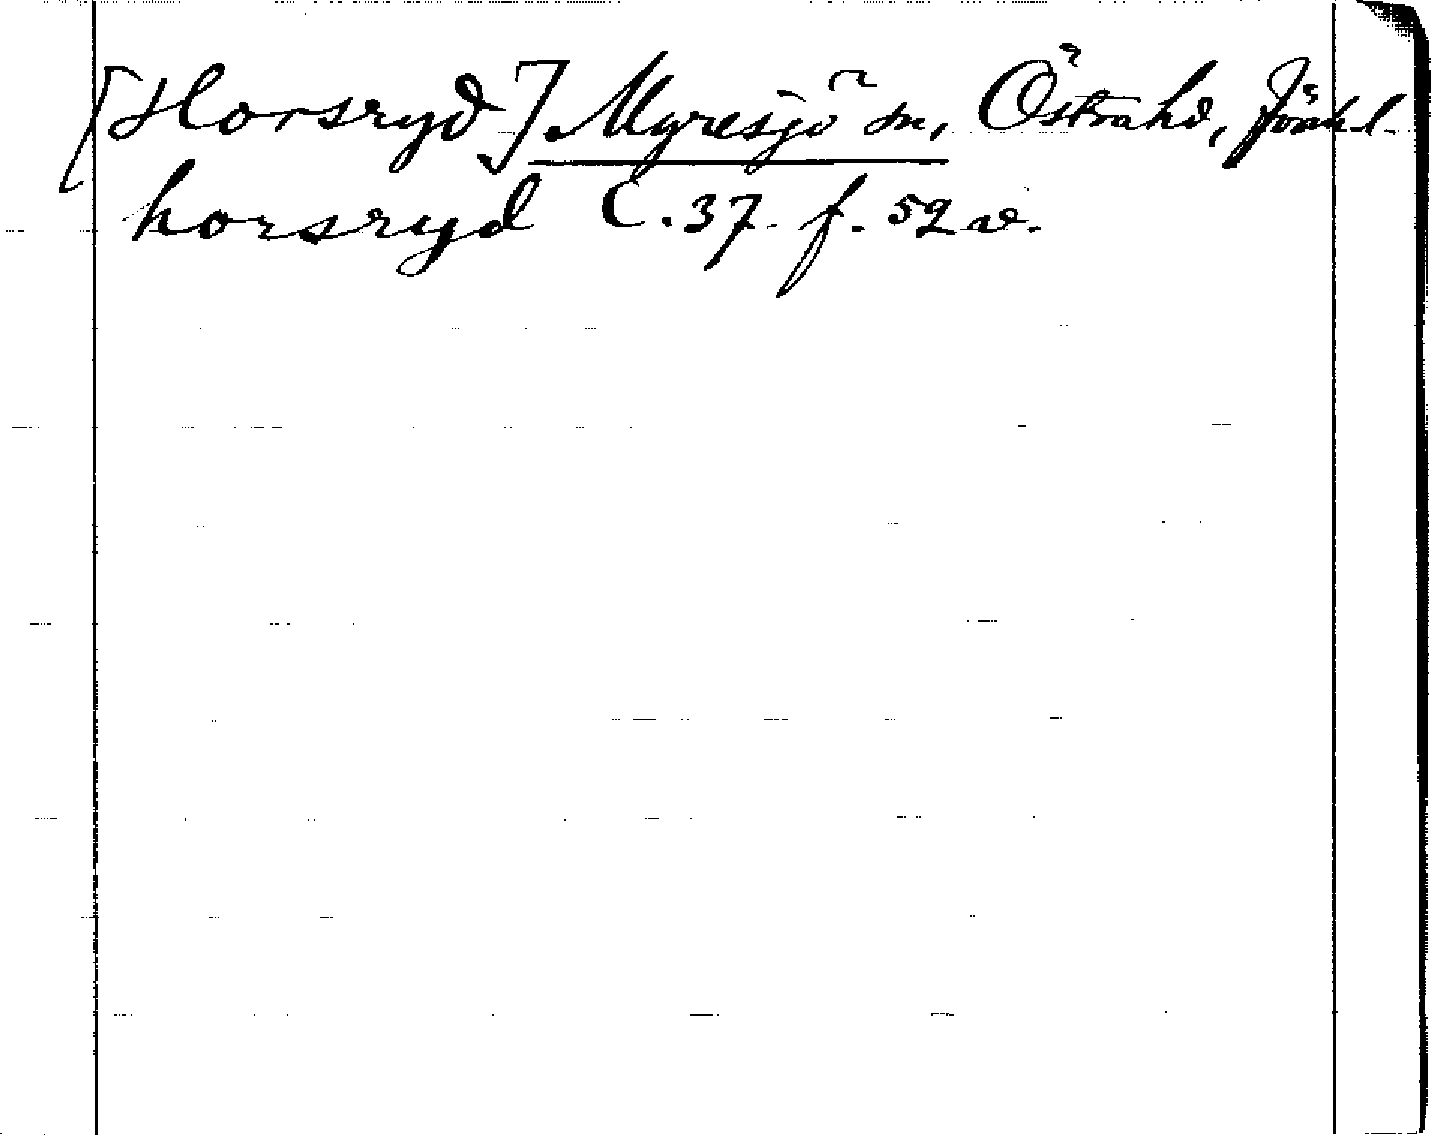 [Horsryd] Myresjö sn, Östra hd, Jönk. l.
horsryd C. 37. f. 52 v.